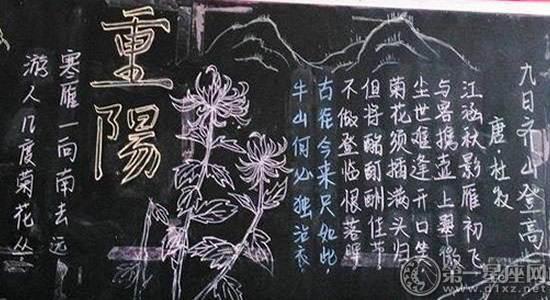 九日齐山登高
唐 杜牧
江涵秋影雁初飞
与客携壶上翠微
尘世难逢开口笑
菊花须插满头归
但将酩酊酬佳节
不做登临恨落晖
古往今来只如此,
牛山何必独沾衣.
重陽
寒雁一向南去远
游人几度菊花丛
第一星座网
www.d1xz.net